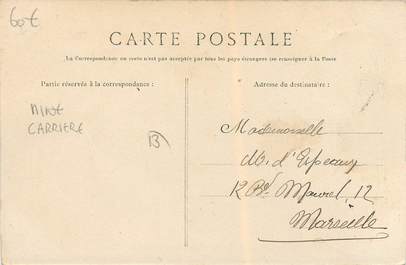 60€
CARTE POSTALE
La Correspondance au recto n'est pas acceptée par tous les pays étrangers (se renseigner à la Poste
Partie réservée à la correspondance :
Adresse du destinataire :
MINE
CARRIERE
B
Mademoiselle
M. d'
12 Bd Maurel, 12
Marseille